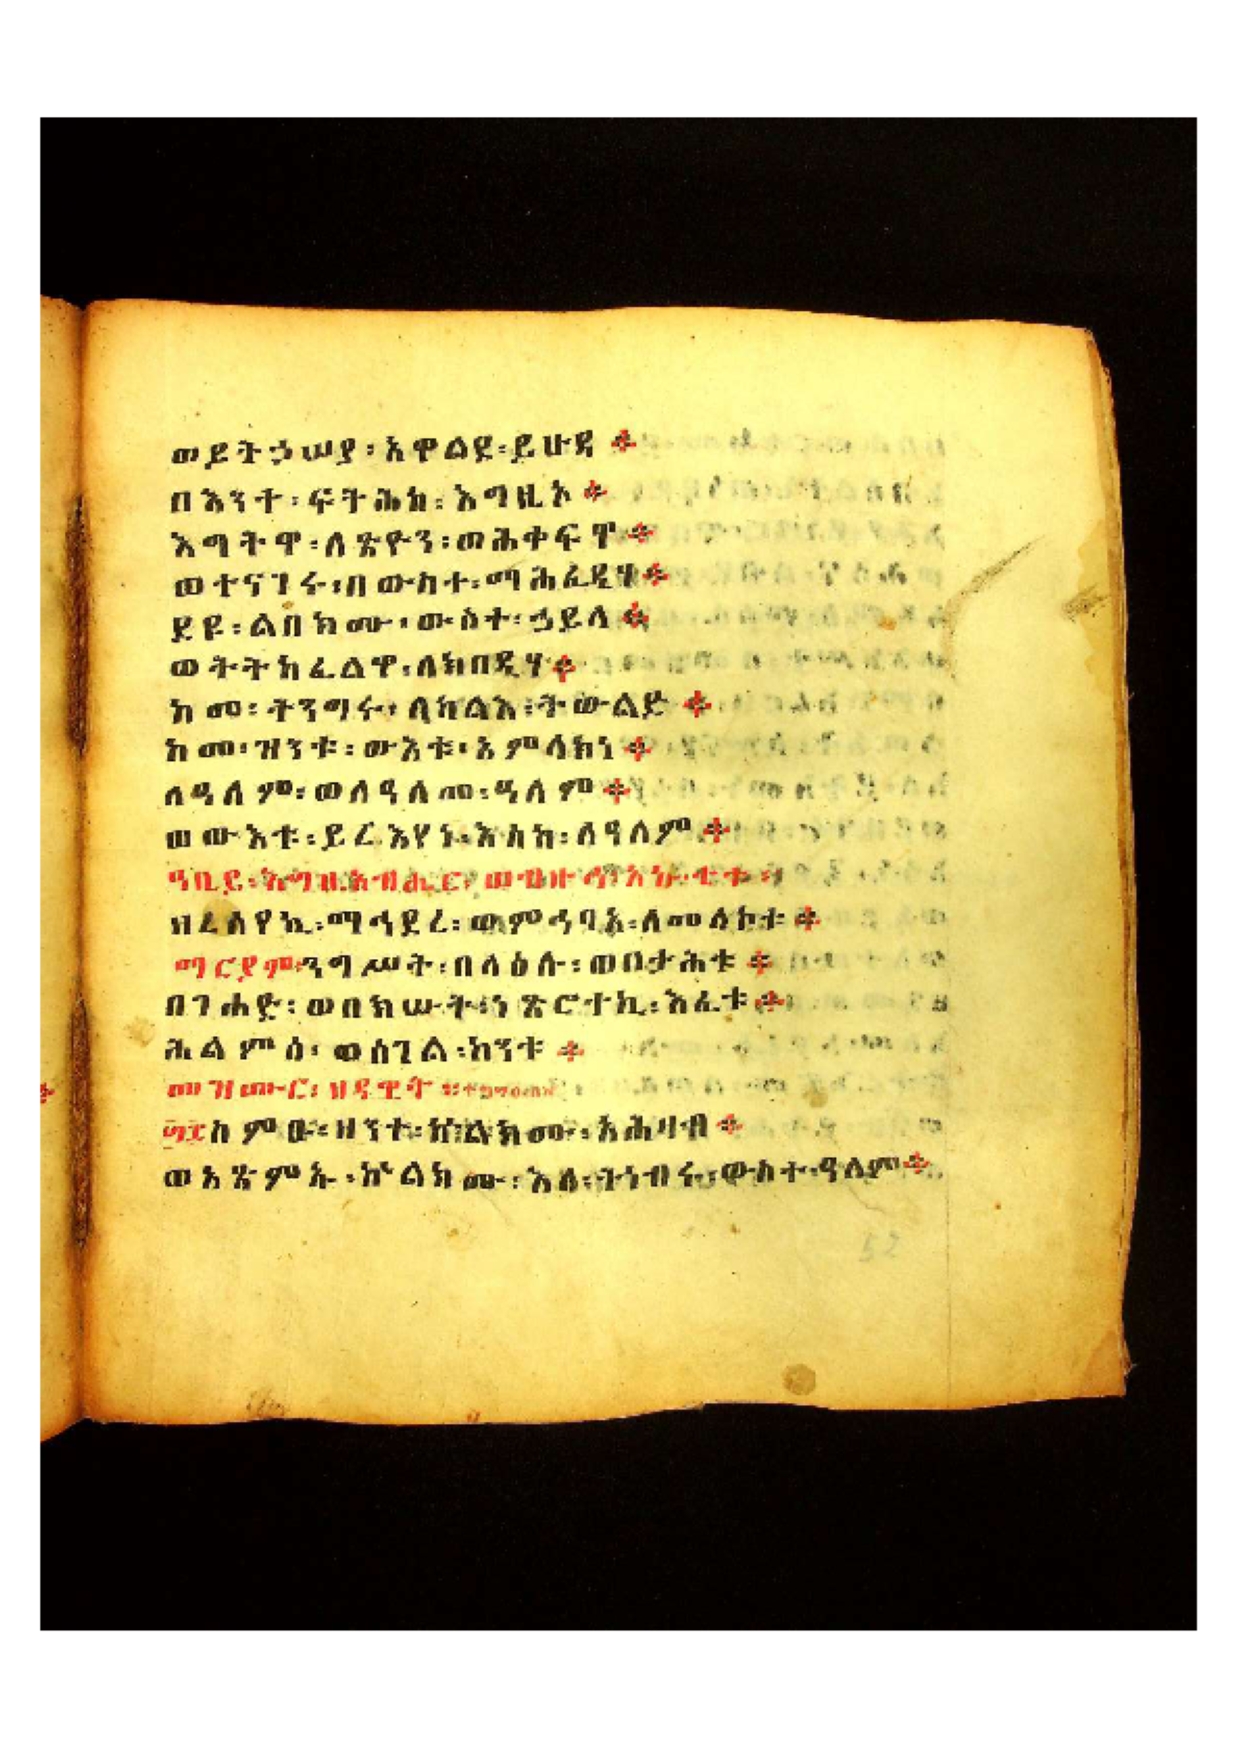 ወይትኃሠያ፡አዋልደ፡ይሁዳ፨
በእንተ፡ፍትሕከ፡እግዚኦ፨
እግትዋ፡ለጽዮን፡ወሕቀፍዋ፨
ወተናገሩ፡በውስተ፡ማሕፈዲሃ፨
ደዩ፡ልበክሙ፡ውስተ፡ኃይላ፨
ወትትካፈልዋ፡ለክበዲሃ፨
ከመ፡ትንግሩ፡ለካልእ፡ትውልድ፨
ከመ፡ዝንቱ፡ውእቱ፡አምላክነ፨
ለዓለም፡ወለዓለመ፡ዓለም፨
ወውእቱ፡ይሬእየነ፡እስከ፡ለዓለም፨
ዓቢይ፡እግዚአብሔር፡
ማኅደረ፡ለመለኮቱ፨
ማርያም፡ንግሥት፡በላዕሉ፡ወበታሕቱ፨
በገሐድ፡ወበክሡት፡ነጽሮተኪ፡እፈቱ፨
ሕልምሰ፡ወሰገል፡ከንቱ፨
መዝሙር፡ዘዳዊት፡
ስምዑ፡ዘንተ፡ኵልክሙ፡አሕዛብ፨
ወአጽምኡ፡ኵልክሙ፡እለ፡ትነብሩ፡ውስተ፡ዓለም፨
52